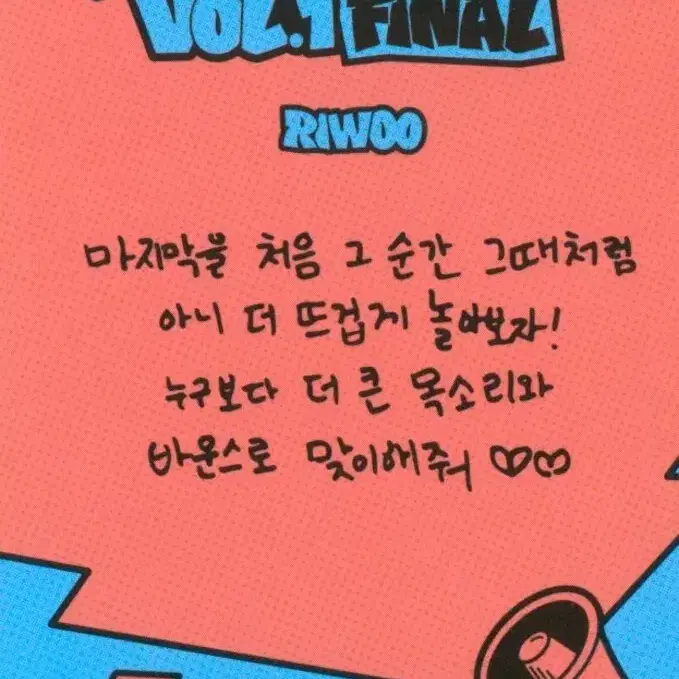 VOL.1 FINAL
RIWOO
마지막을 처음 그 순간 그때처럼
아니 더 뜨겁게 놀아보자!
누구보다 더 큰 목소리와
바운스로 맞이해줘 ♡♡